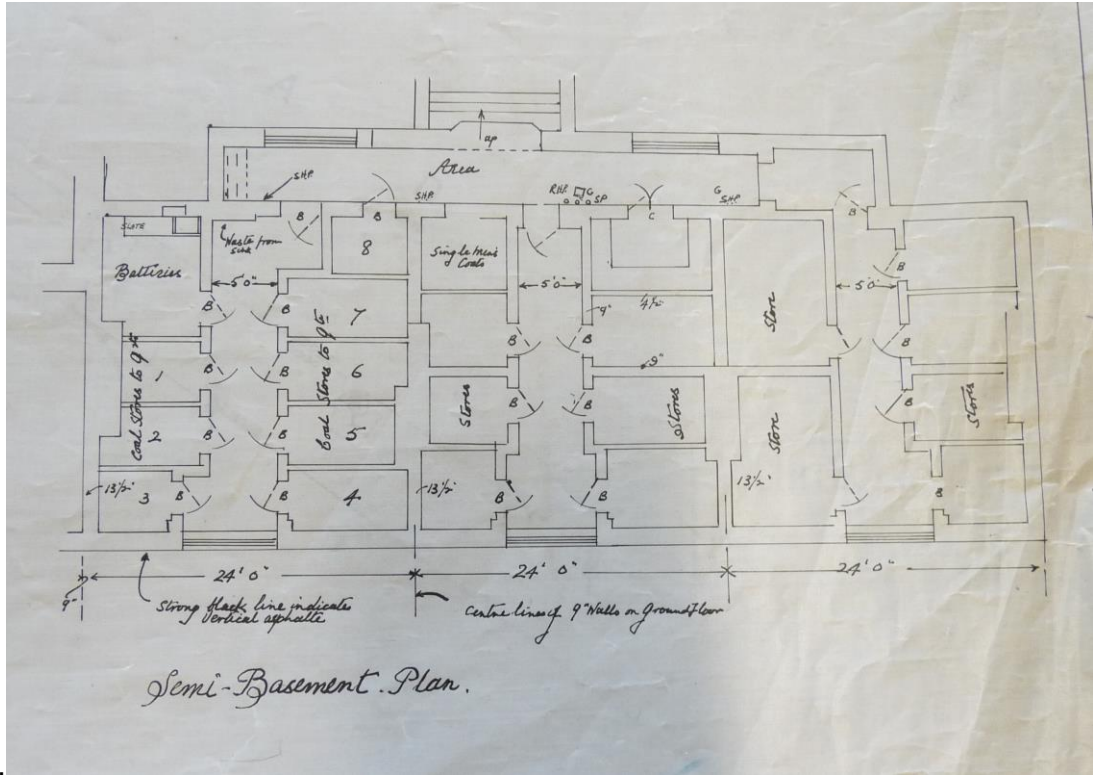 up
Area
S.H.P.
S.H.P.
R.H.P.
G
S.P.
G
S.H.P.
C
B
B
B
SLATE
Waste from
sink
8
Single Men's
Coats
Batteries
5'0"
5'0"
5'0"
B
B
B
7
9"
4½"
Store
B
B
B
B
B
Coal Stores to Qrs
1
Coal Stores to Qrs
6
9"
B
B
B
B
B
Stores
Stores
Store
Stores
2
5
13½"
3
B
B
4
13½"
B
B
13½"
B
24' 0"
24' 0"
24' 0"
9"
Strong black line indicates
Vertical asphalte
Centre lines of 9" Walls on Ground floor
Semi-Basement. Plan.